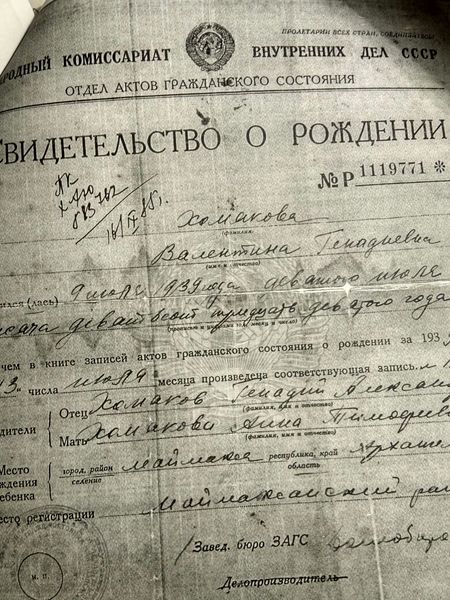 ПРОЛЕТАРИИ ВСЕХ СТРАН, СОЕДИНЯЙТЕСЬ
РОДНЫЙ КОМИССАРИАТ ВНУТРЕННИХ ДЕЛ СССР
ОТДЕЛ АКТОВ ГРАЖДАНСКОГО СОСТОЯНИЯ
СВИДЕТЕЛЬСТВО О РОЖДЕНИИ
№ Р 1119771 *
883762
Хомакова
(фамилия)
Валентина Генадиевна
(имя и отчество)
лся (лась) 9 июля 1939 года девятого июля
ысяча девятьсот тридцать девятого года
(прописью и цифрами год, месяц и число)
чем в книге записей актов гражданского состояния о рождении за 193
13 числа июля месяца произведена соответствующая запись
Отец Хомаков Генадий Алексан
(фамилия, имя и отчество)
дители
Мать Хомакова Анна Тимофеев
(фамилия, имя и отчество)
Место рождения ребенка город, район селение Маймакса республика, край область Архан
есто регистрации Маймаксанский рай
Завед. бюро ЗАГС
М. П.
Делопроизводитель